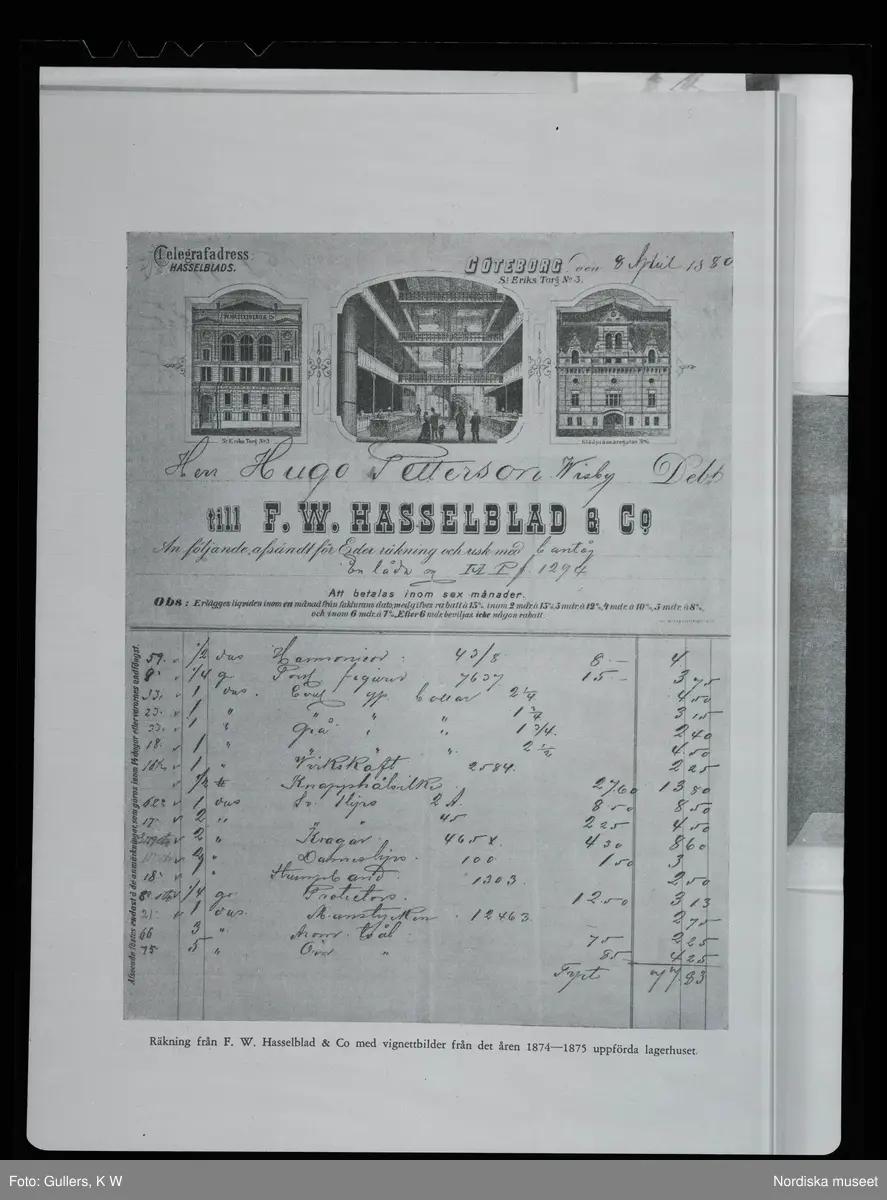 Telegrafadress:
HASSELBLADS.
GÖTEBORG den 8 April 1880
St Eriks Torg No 3.
F.W. HASSELBLAD & Co
St Eriks Torg No 3
Herr Hugo Petterson Wisby Debt
till F. W. HASSELBLAD & Co
An följande, afsändt för Eder räkning och risk med
En låda 1294
Att betalas inom sex månader.
Obs: Erlägges liqviden inom en månad från fakturans dato, medgifves rabatt à 15%, inom 2 mdr. à 13%, 3 mdr. à 12%, 4 mdr. à 10%, 5 mdr. à 8%,
och inom 6 mdr. à 7%. Efter 6 mdr. beviljas icke någon rabatt.
Afseende fästes endast à de anmärkningar, som göras inom 14 dagar efter varornas undfångst.
59. 1/2 dus Harmonicor 43/8 8.— 4
8. 1/4 g Porsl figurer 7637 15— 3 75
33. 1 dus. 2 1/4 4 50
23. 1 " " " " 1 3/4 3 15
33. 1 " Grå " " 1 3/4. 2 40
18. 1 " " " " 2 1/2 4 50
1 " Virkskaft 2584. 2 25
1/2 Knapphålsilke 27 60 13 80
1 dus 8 50 8 50
17. 2 " " " 45 2 25 4 50
2 " Kragar 465 4 30 8 60
2 " 100 1 50 3
18. Strumpband 1303. 2 50
1/4 gr Protectors. 12 50 3 13
21. 1 dus. 12463. 2 75
66 3 " tvål 75 2 25
75 5 " " 85 4 25
77 83
Räkning från F. W. Hasselblad & Co med vignettbilder från det åren 1874—1875 uppförda lagerhuset.
Foto: Gullers, K W
Nordiska museet